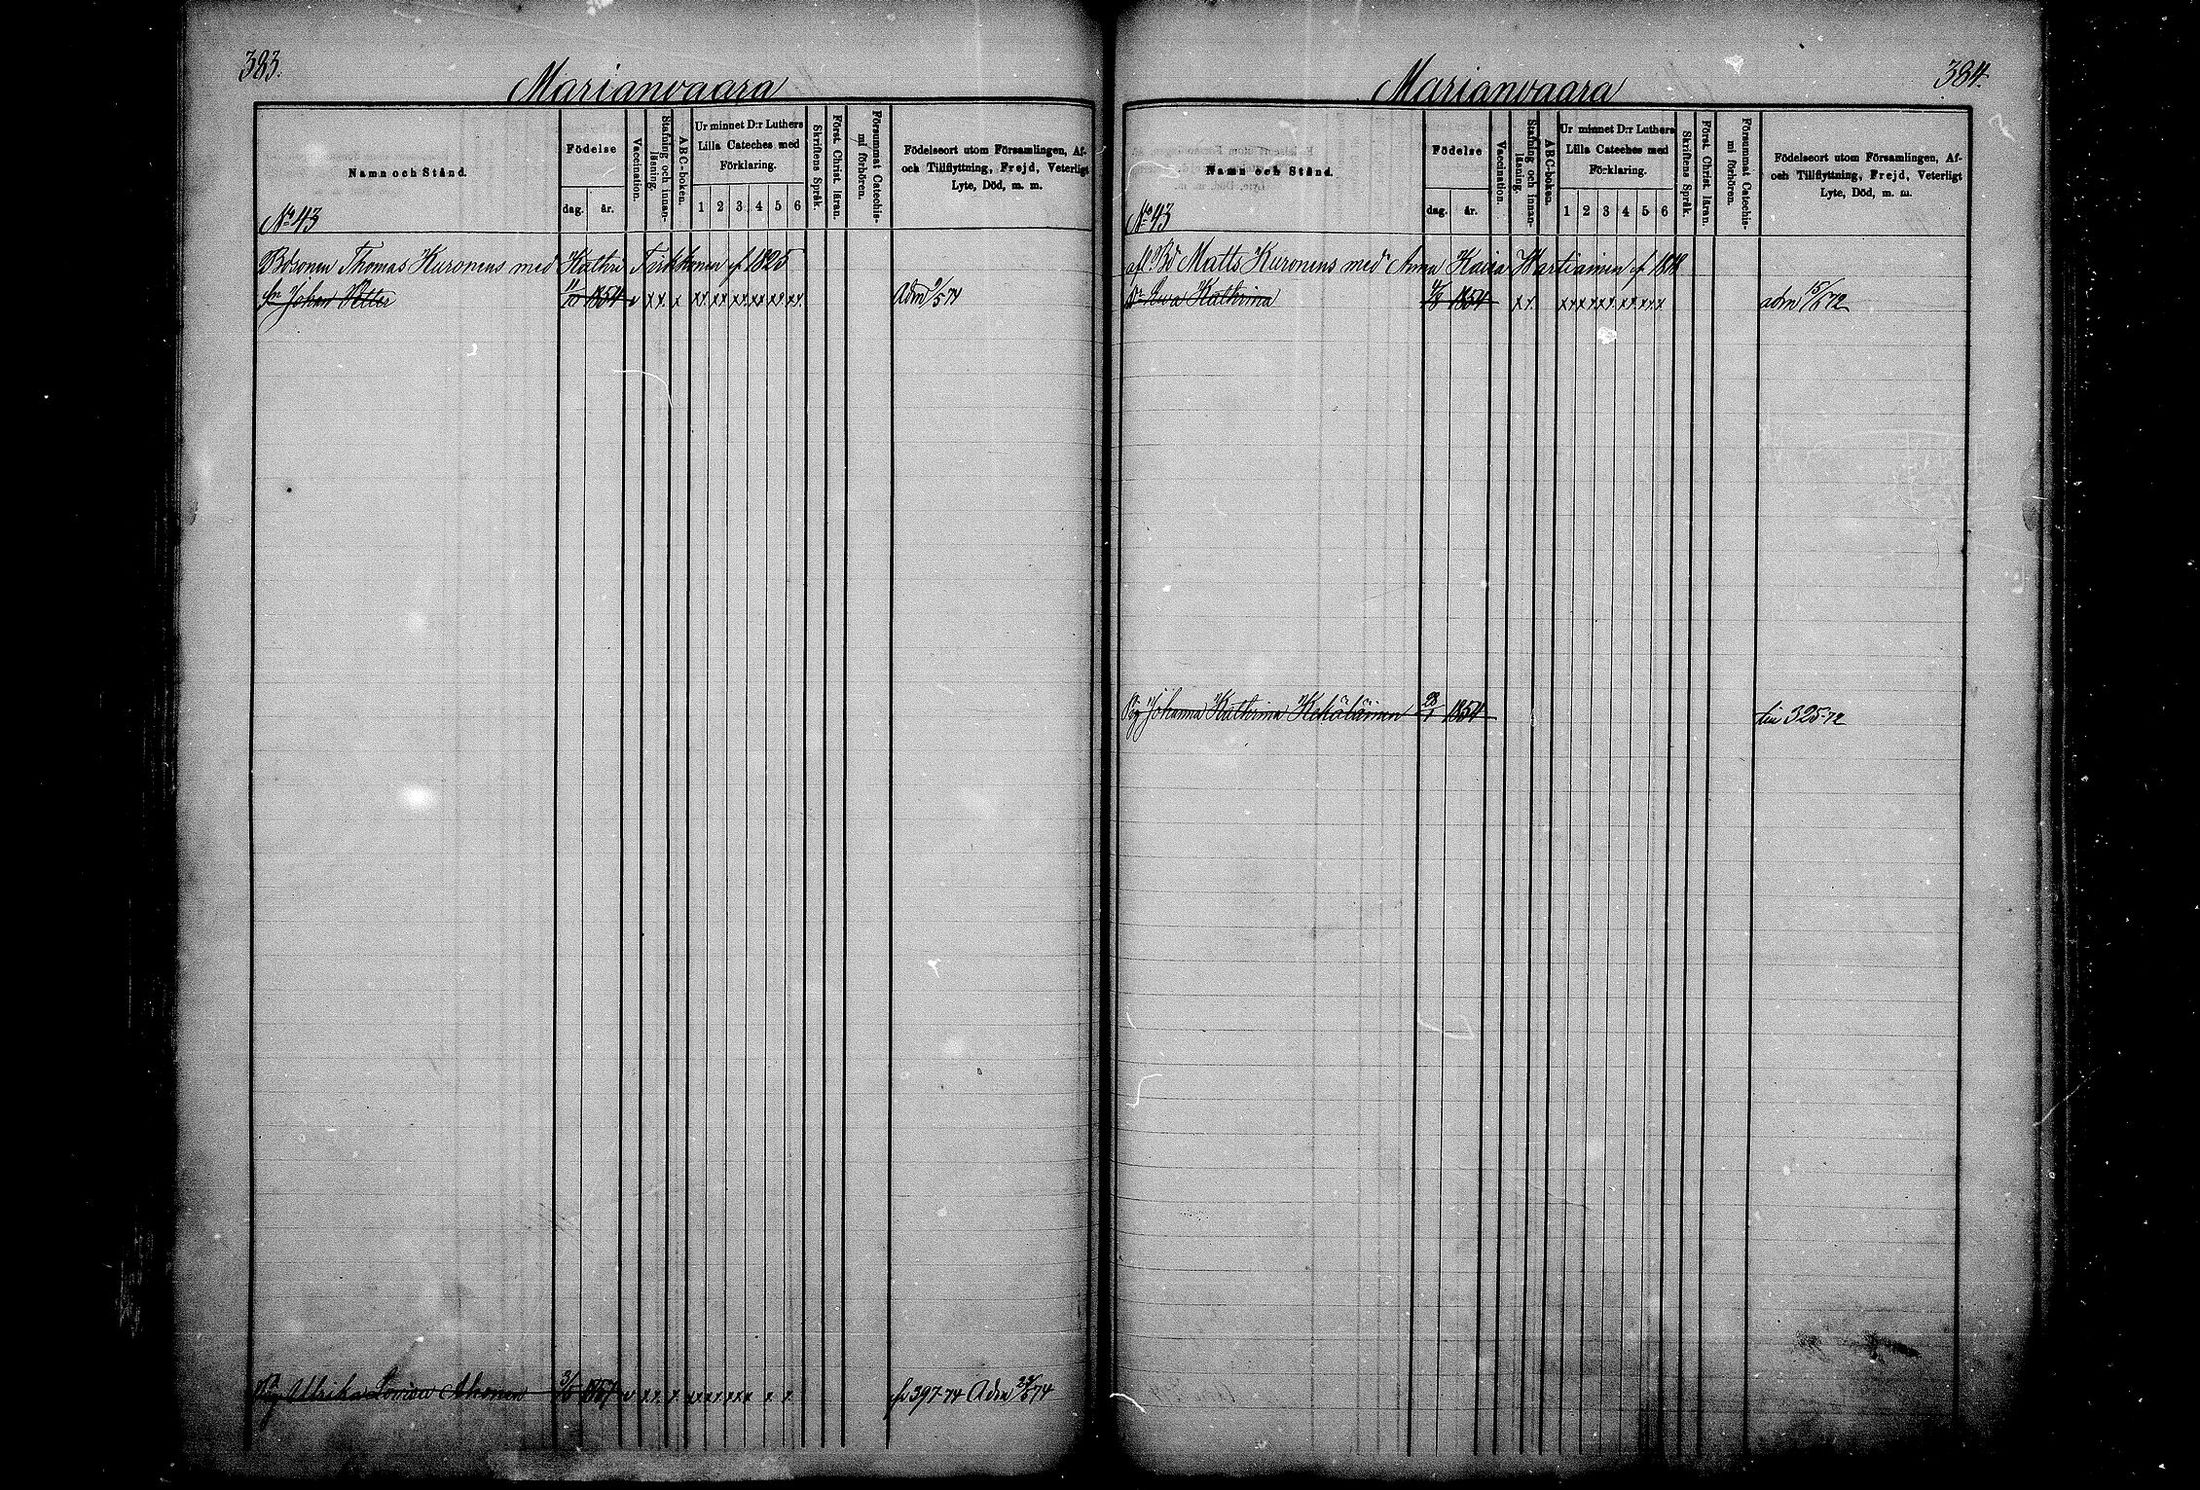 383.
Marianvaara
Namn och Stånd.
Födelse
dag. år.
Vaccination.
Stafning och innan-
läsning.
ABC-boken.
Ur minnet D:r Luthers
Lilla Cateches med
Förklaring.
1 2 3 4 5 6
Skriftens Språk.
Först. Christ. läran.
Försummat Catechis-
mi förhören.
Födelseort utom Församlingen, Af-
och Tillflyttning, Frejd, Veterligt
Lyte, Död, m. m.
No 43
Bdsonen Thomas Kuronens med Kathr: Tirkkonen f 1825
Sn Johan Petter 11/10 1854 v xx x xx xx xx xx xx xx Adm /5 74
Pig Ulrika Lovisa Ahonen 1857 v xx x x x f 397-74 Adm 74
384.
Marianvaara
Namn och Stånd.
Födelse
dag. år.
Vaccination.
Stafning och innan-
läsning.
ABC-boken.
Ur minnet D:r Luthers
Lilla Cateches med
Förklaring.
1 2 3 4 5 6
Skriftens Språk.
Först. Christ. läran.
Försummat Catechis-
mi förhören.
Födelseort utom Församlingen, Af-
och Tillflyttning, Frejd, Veterligt
Lyte, Död, m. m.
No 43
afl Bd Matts Kuronens med Anna Kaisa Martiainen f
Dr Ewa Kathrina 1854 xx xx xx xx xx xx xx adm 72
Pig Johanna Kathrina 28/1 1854 till 325-72